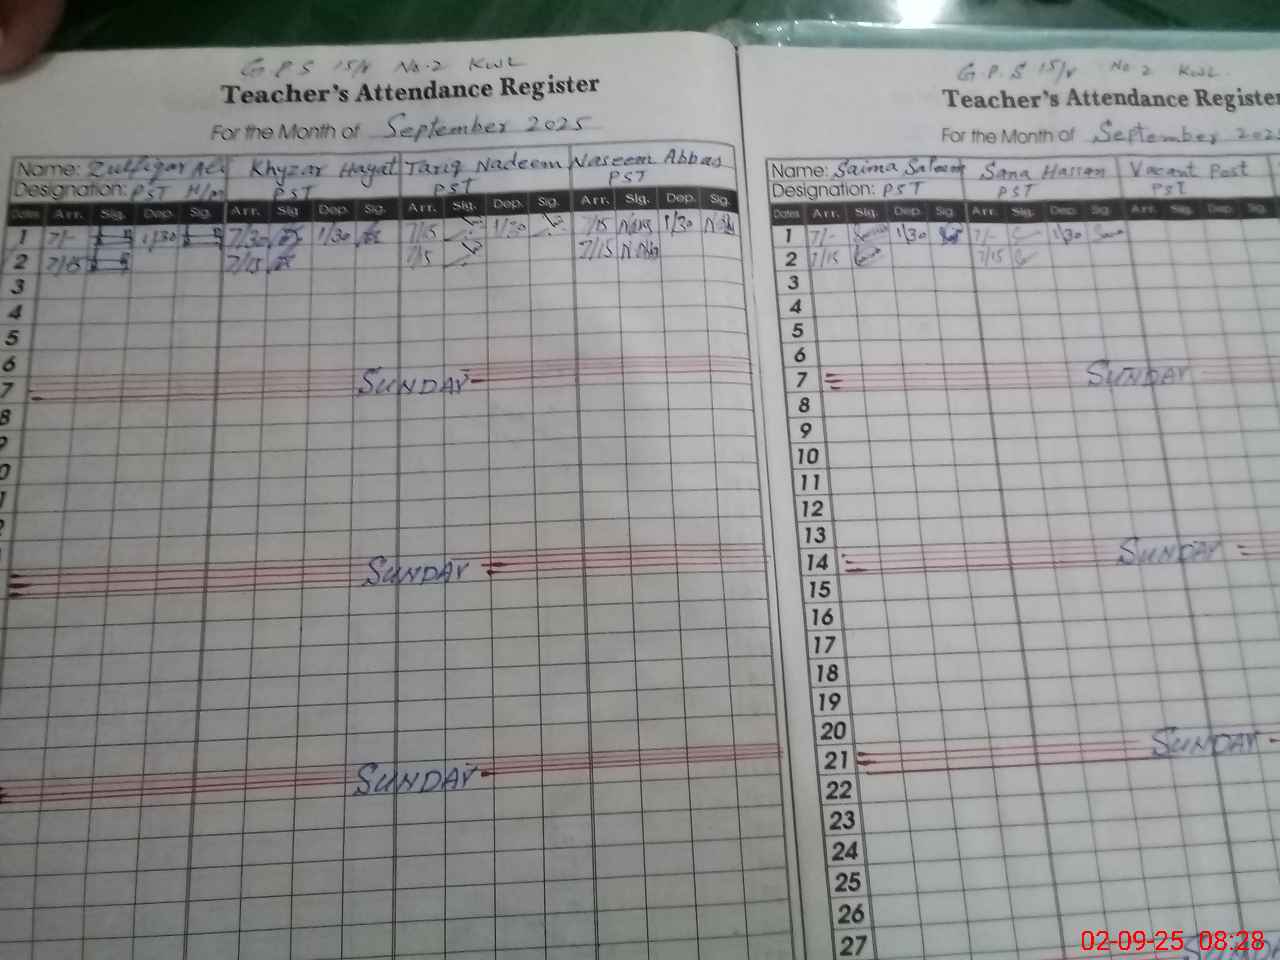 G.P.S 15/v No.2 KWL
Teacher's Attendance Register
For the Month of September 2025
Name: Zulfiqar Ali Khyzar Hayat Tariq Nadeem Naseem Abbas
Designation: PST H/m PST PST PST
Dates Arr. Sig. Dep. Sig. Arr. Sig. Dep. Sig. Arr. Sig. Dep. Sig. Arr. Sig. Dep. Sig.
1 7/- 1/30 7/30 1/30 7/15 1/30 7/15 1/30
2 7/15 7/15 7/15 7/15
3
4
5
6
7 SUNDAY
8
SUNDAY
SUNDAY
G.P.S 15/v No 2 KWL.
Teacher's Attendance Register
For the Month of September
Name: Saima Saleem Sana Hassan Vacant Post
Designation: PST PST PST
Dates Arr. Sig. Dep. Sig. Arr. Sig. Dep. Sig. Arr. Sig. Dep. Sig.
1 7/- 1/30 7/- 1/30
2 7/15 7/15
3
4
5
6
7 SUNDAY
8
9
10
11
12
13
14 SUNDAY
15
16
17
18
19
20
21 SUNDAY
22
23
24
25
26
27
02-09-25 08:28